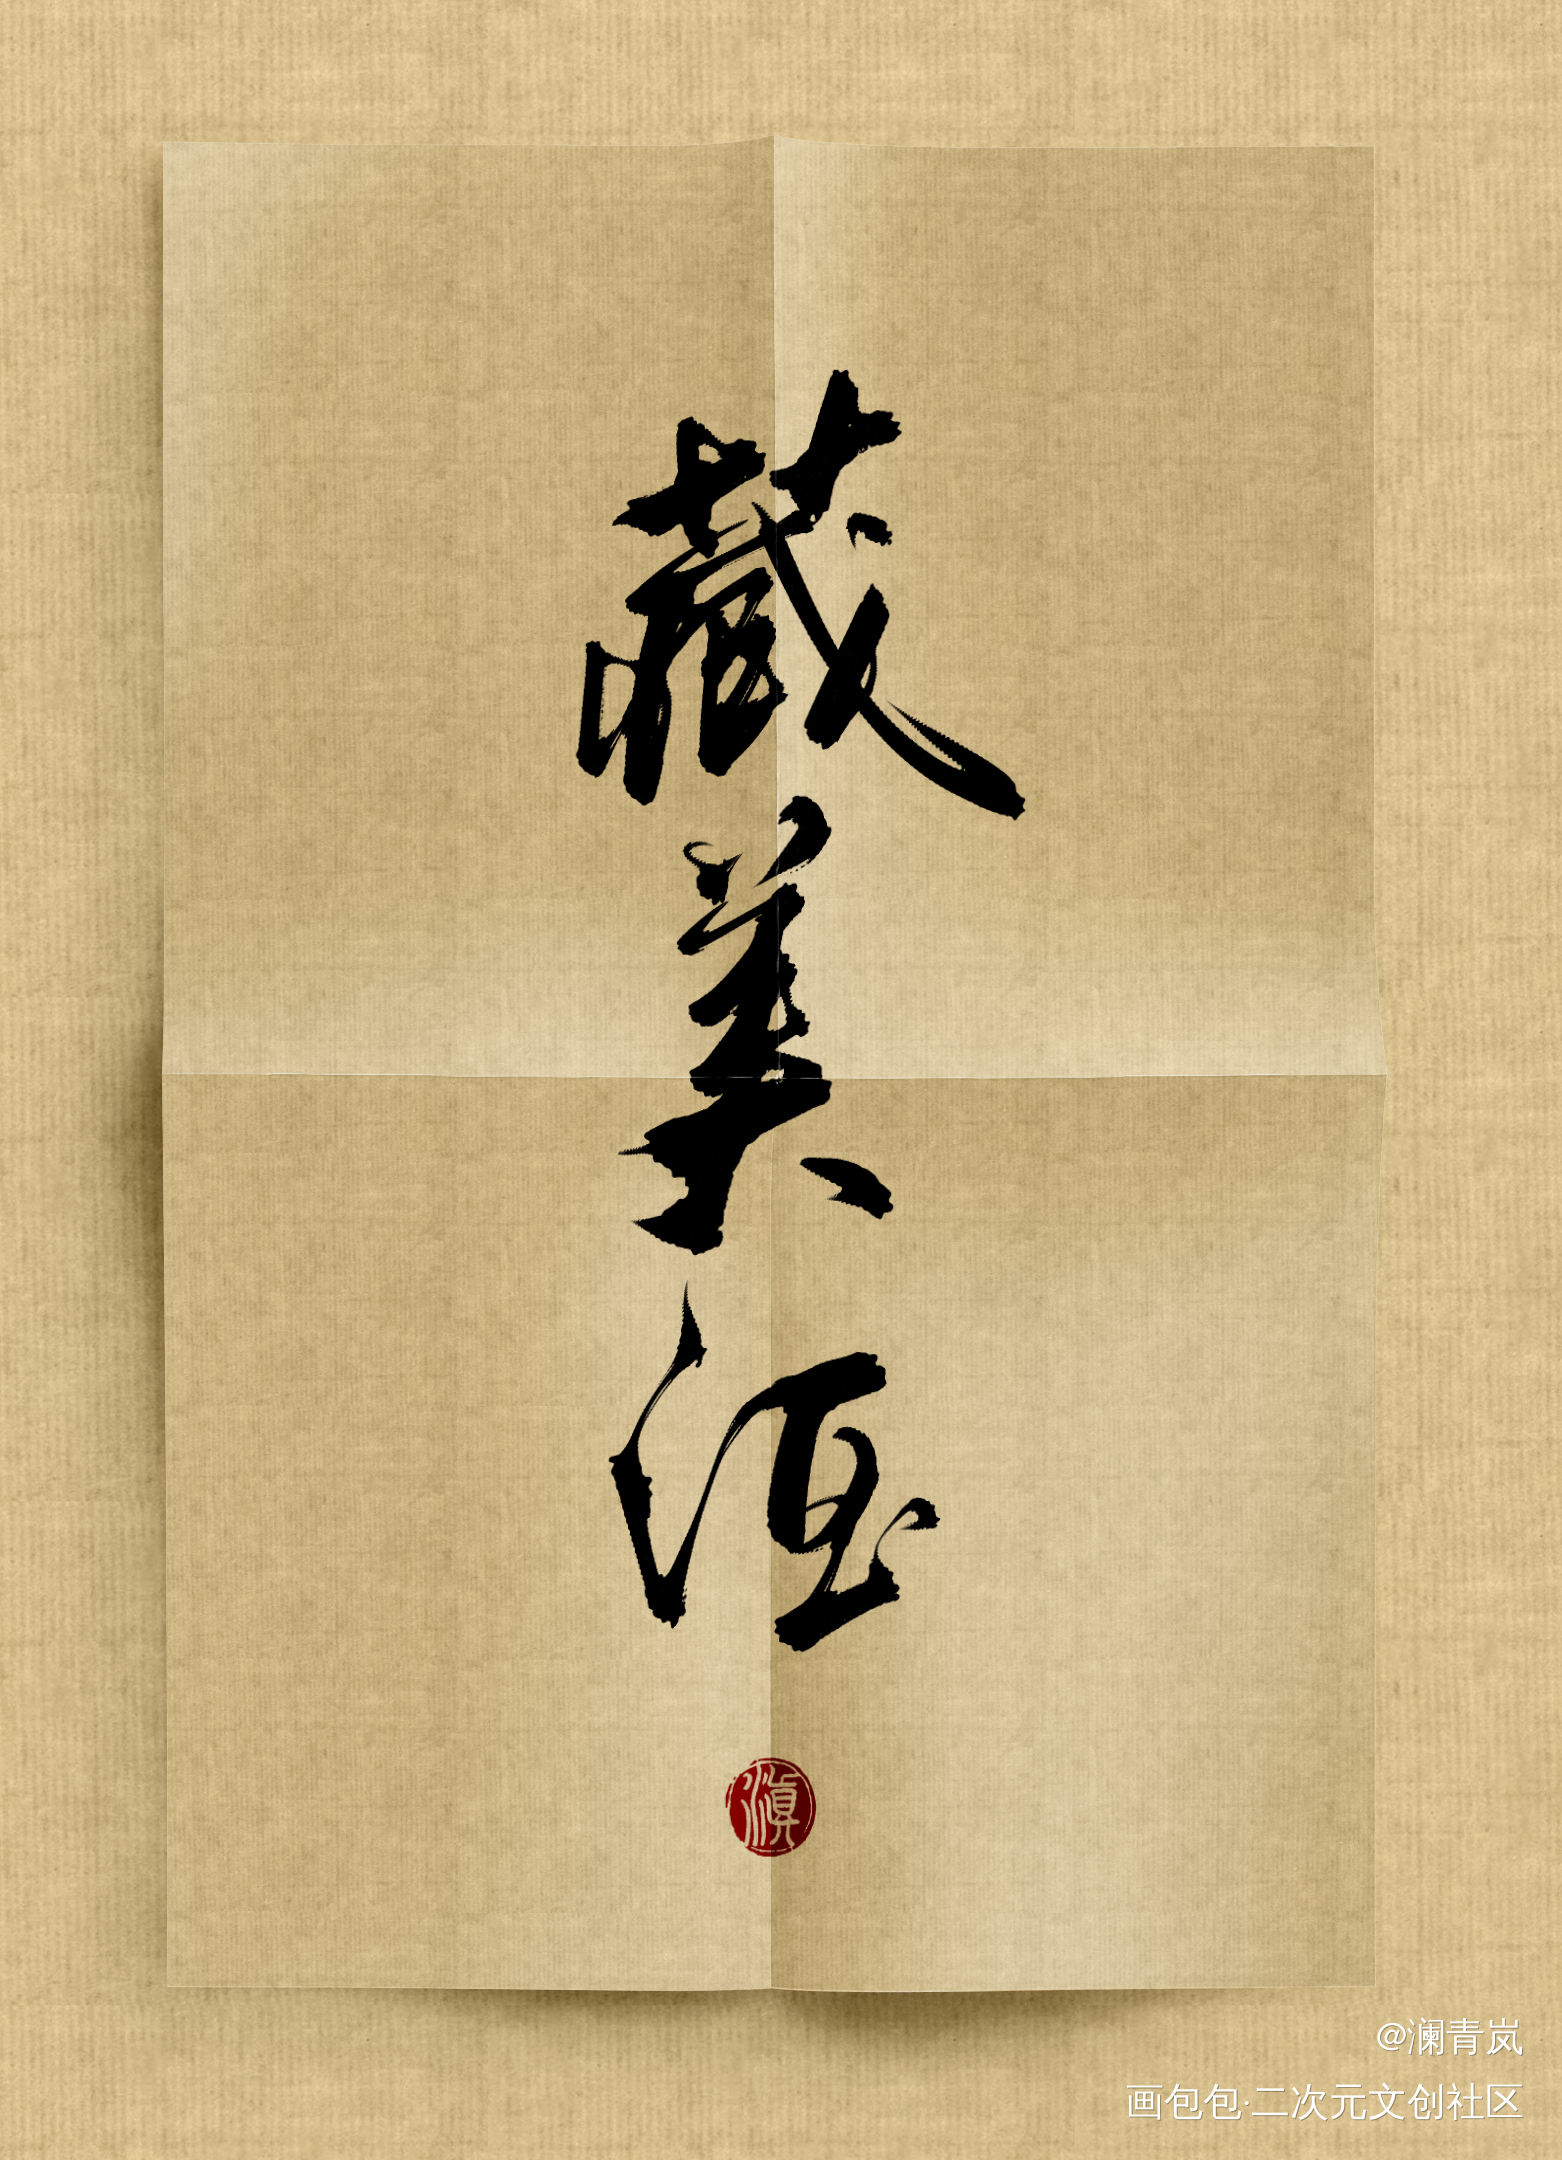 藏美酒
滇
@澜青岚
画包包·二次元文创社区